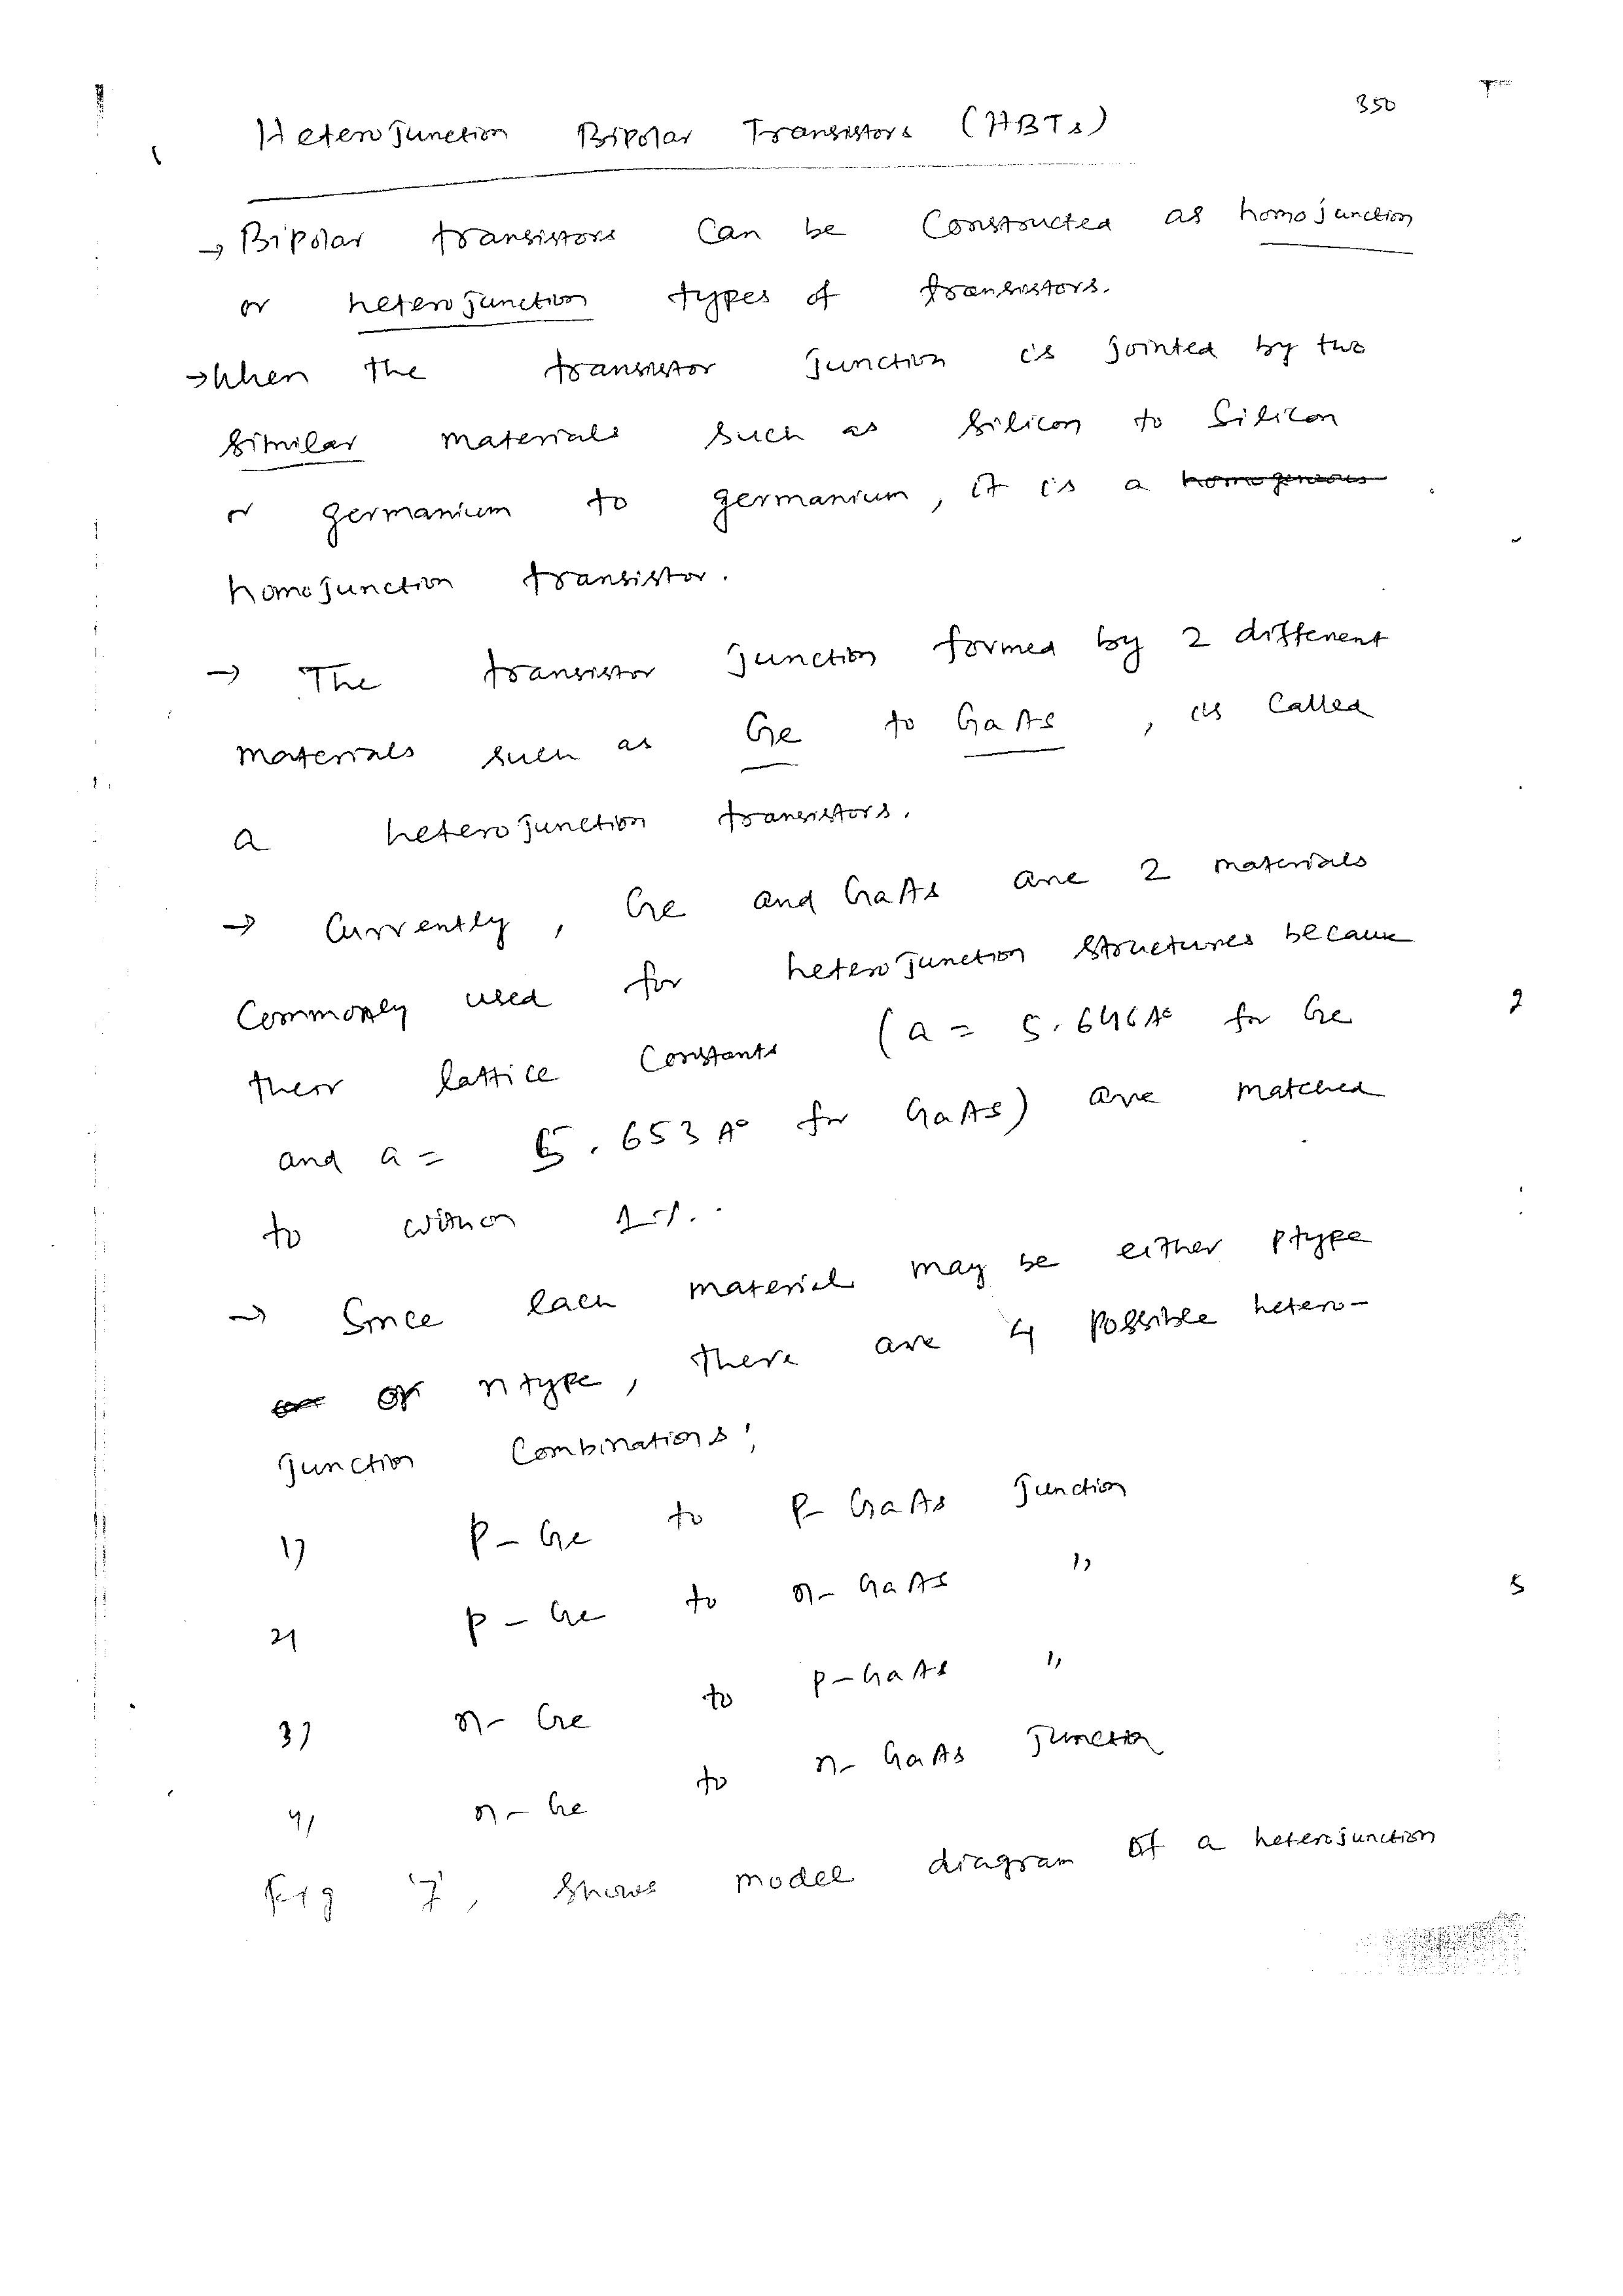 350
Heterojunction Bipolar Transistors (HBTs)
→ Bipolar transistors can be constructed as homojunction
or heterojunction types of transistors.
→ When the transistor junction is jointed by two
similar materials such as silicon to silicon
or germanium to germanium, it is a homogeneous
homojunction transistor.
→ The transistor junction formed by 2 different
materials such as Ge to GaAs, is called
a heterojunction transistors.
→ Currently, Ge and GaAs are 2 materials
commonly used for heterojunction structures because
their lattice constants (a = 5.646A° for Ge
and a = 5.653A° for GaAs) are matched
to within 1%.
→ Since each material may be either ptype
or ntype, there are 4 possible hetero-
junction combinations;
1) p- Ge to p- GaAs junction
2) p- Ge to n- GaAs "
3) n- Ge to p-GaAs "
4) n- Ge to n- GaAs junction
Fig '7', shows model diagram of a heterojunction